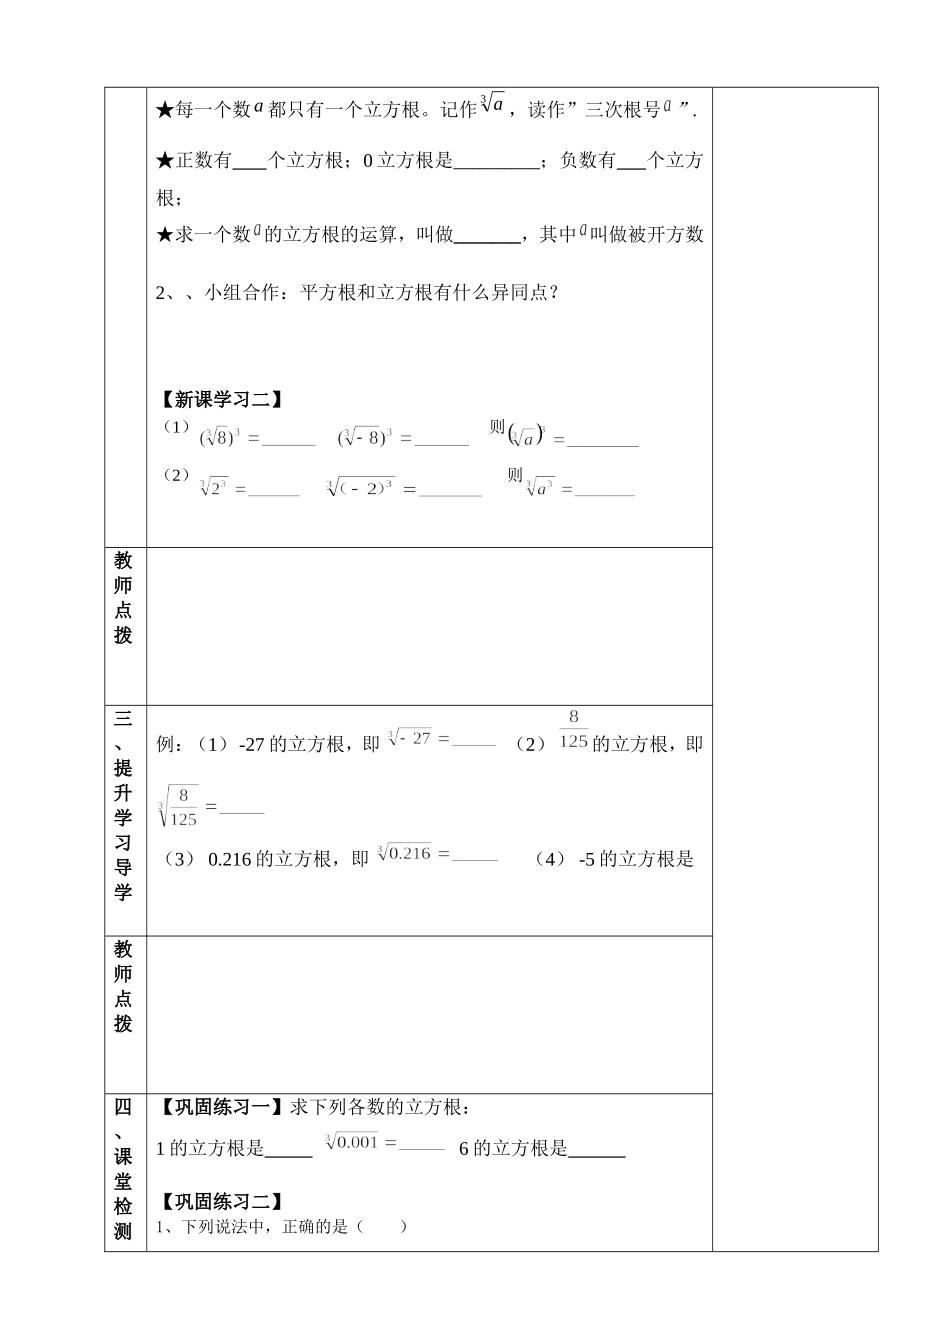 ★每一个数 a 都只有一个立方根。记作 ∛a ，读作”三次根号 a ”.
★正数有____个立方根；0 立方根是_________；负数有___个立方
根；
★求一个数 a 的立方根的运算，叫做_______，其中 a 叫做被开方数
2、、小组合作：平方根和立方根有什么异同点？
【新课学习二】
（1） (∛8)³ =______ (∛-8)³ =______ 则 (∛a)³ =________
（2） ∛2³ =______ ∛(-2)³ =_______ 则 ∛a³ =_______
教
师
点
拨
三
、
提
升
学
习
导
学
例：（1）-27 的立方根，即 ∛-27 =_____ （2） 8/125 的立方根，即
∛(8/125) =_____
（3） 0.216 的立方根，即 ∛0.216 =_____ （4） -5 的立方根是
教
师
点
拨
四
、
课
堂
检
测
【巩固练习一】求下列各数的立方根：
1 的立方根是_____ ∛0.001 =_____ 6 的立方根是______
【巩固练习二】
1、下列说法中，正确的是（　　）